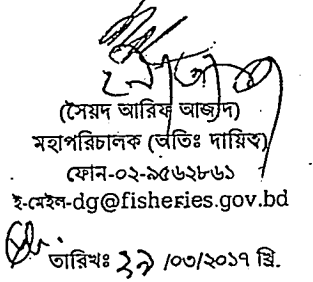 (সৈয়দ আরিফ আজাদ)
মহাপরিচালক (অতিঃ দায়িত্ব)
ফোন-০২-৯৫৬২৮৬১
ই-মেইল-dg@fisheries.gov.bd
তারিখঃ ২৯ /০৩/২০১৭ খ্রি.